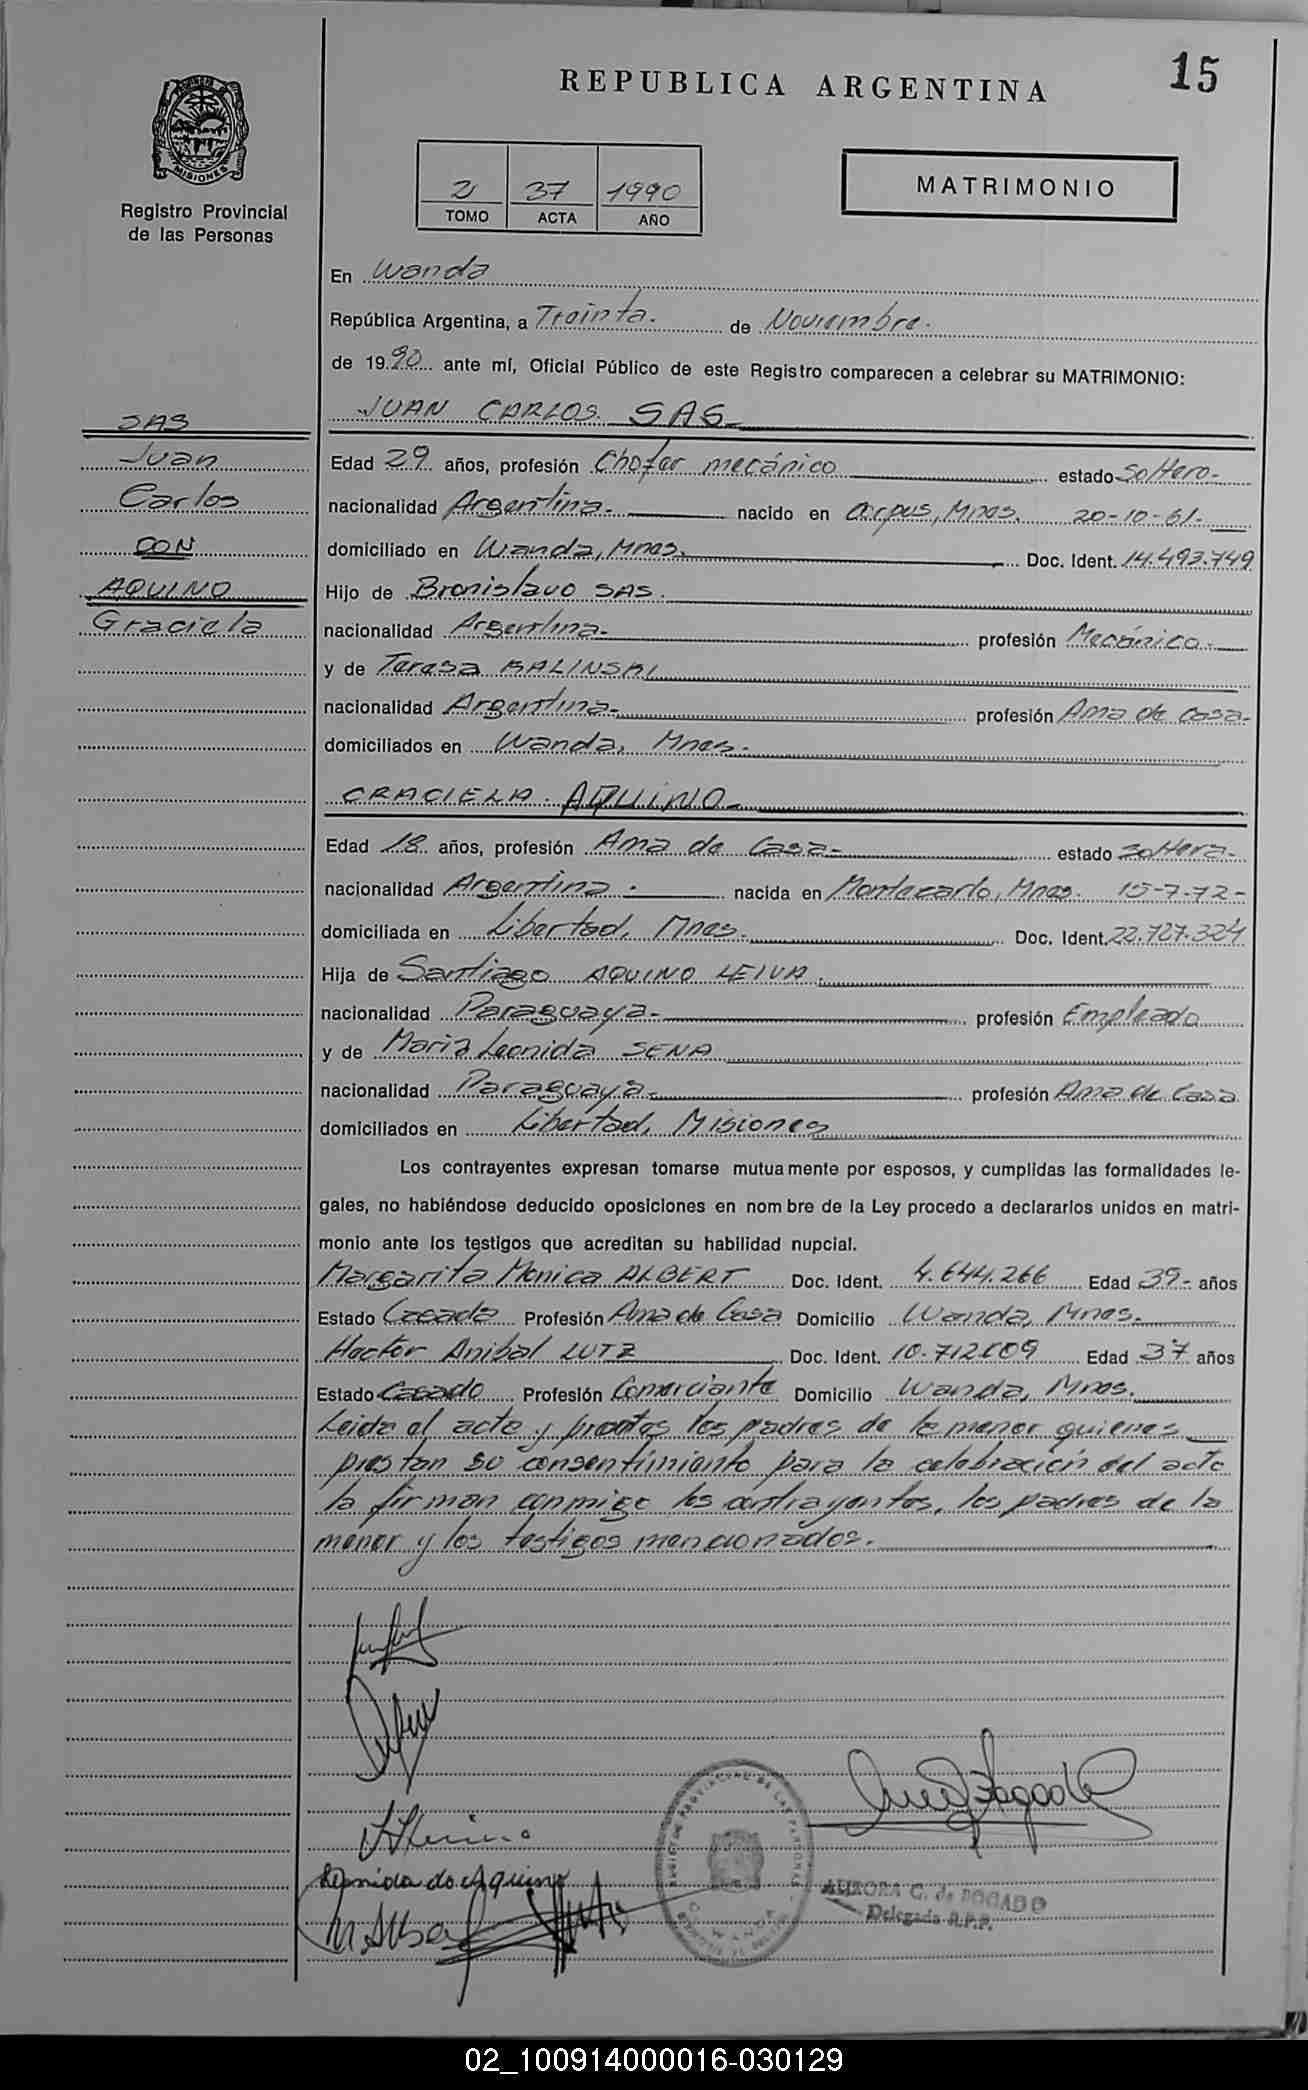 15
REPUBLICA ARGENTINA
MISIONES
Registro Provincial
de las Personas
2 37 1990
TOMO ACTA AÑO
MATRIMONIO
En Wanda
República Argentina, a Treinta. de Noviembre.
de 1990 ante mí, Oficial Público de este Registro comparecen a celebrar su MATRIMONIO:
JUAN CARLOS SAS
SAS
Juan
Carlos
CON
AQUINO
Graciela
Edad 29 años, profesión Chofer mecánico estado Soltero-
nacionalidad Argentina. nacido en Corpus, Mnes. 20-10-61-
domiciliado en Wanda, Mnes. Doc. Ident. 14.493.749
Hijo de Bronislavo SAS.
nacionalidad Argentina- profesión Mecánico-
y de Teresa KALINSKI
nacionalidad Argentina- profesión Ama de casa-
domiciliados en Wanda, Mnes.
GRACIELA AQUINO
Edad 18 años, profesión Ama de Casa- estado Soltera-
nacionalidad Argentina. nacida en Montecarlo, Mnes. 15-7-72-
domiciliada en Libertad, Mnes. Doc. Ident. 22.727.324
Hija de Santiago AQUINO LEIVA.
nacionalidad Paraguaya- profesión Empleado
y de Maria Leonida SENA
nacionalidad Paraguaya- profesión Ama de Casa
domiciliados en Libertad, Misiones
Los contrayentes expresan tomarse mutuamente por esposos, y cumplidas las formalidades le-
gales, no habiéndose deducido oposiciones en nombre de la Ley procedo a declararlos unidos en matri-
monio ante los testigos que acreditan su habilidad nupcial.
Margarita Monica ALBERT Doc. Ident. 4.644.266 Edad 39- años
Estado Casada Profesión Ama de Casa Domicilio Wanda, Mnes.
Hector Anibal LUTZ Doc. Ident. 10.712.009 Edad 37 años
Estado Casado Profesión Comerciante Domicilio Wanda, Mnes.
Leida el acta y los padres de la menor quienes
prestan su consentimiento para la celebración del acto
la firman conmigo los contrayentes, los padres de la
menor y los testigos mencionados.
de Aquino
AURORA G. de BOGADO
Delegada R.P.P.
REGISTRO PROVINCIAL DE LAS PERSONAS
WANDA
02_100914000016-030129